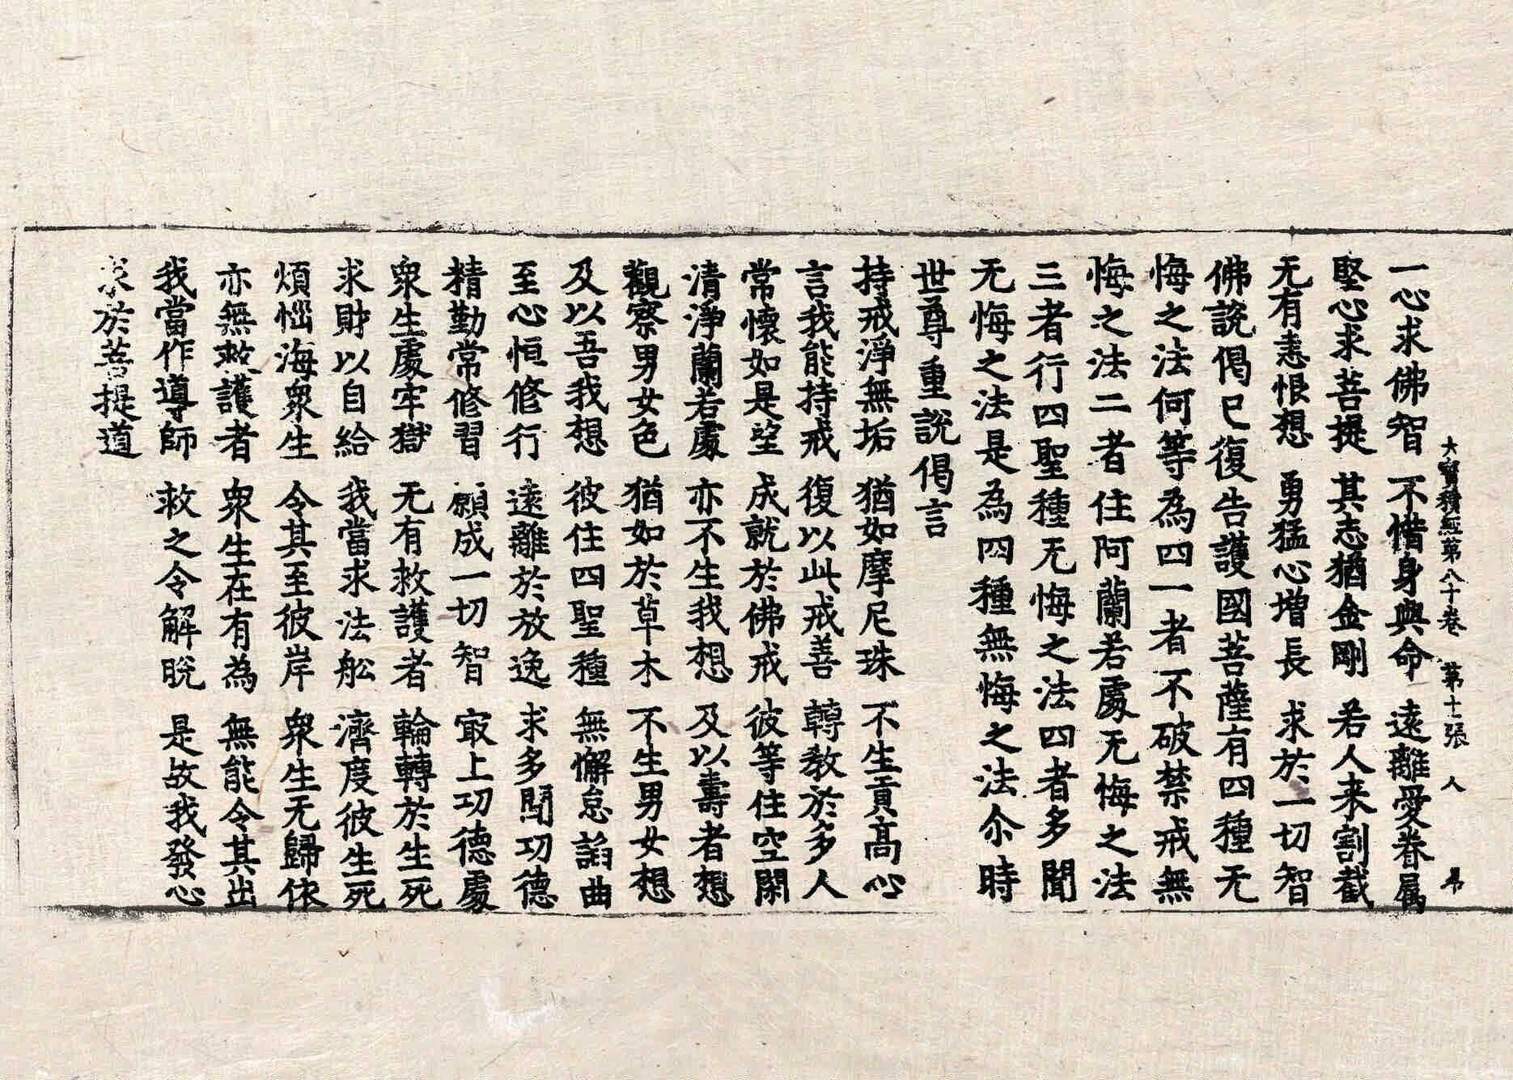 大寳積經第八十卷 第十張 人 帛
一心求佛智 不惜身與命 遠離愛眷属
堅心求菩提 其志猶金剛 若人来割截
无有恚恨想 勇猛心增長 求於一切智
佛說偈已復告護國菩薩有四種无
悔之法何等為四一者不破禁戒無
悔之法二者住阿蘭若處无悔之法
三者行四聖種无悔之法四者多聞
无悔之法是為四種無悔之法尒時
世尊重說偈言
持戒淨無垢 猶如摩尼珠 不生貢高心
言我能持戒 復以此戒善 轉教於多人
常懷如是望 成就於佛戒 彼等住空閑
清淨蘭若處 亦不生我想 及以壽者想
觀察男女色 猶如於草木 不生男女想
及以吾我想 彼住四聖種 無懈怠諂曲
至心恒修行 遠離於放逸 求多聞功德
精勤常修習 願成一切智 㝡上功德處
衆生處牢獄 无有救護者 輪轉於生死
求財以自給 我當求法舩 濟度彼生死
煩惱海衆生 令其至彼岸 衆生无歸依
亦無救護者 衆生在有為 無能令其出
我當作導師 救之令解脫 是故我發心
求於菩提道